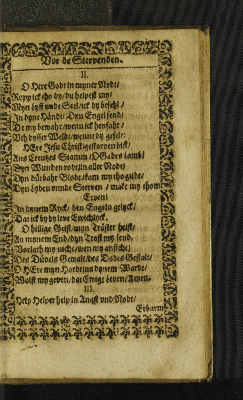 Vor de Stervenden.
II.
O Here Godt in myner Nodt/
Rope ick tho dy/du helpest my/
Myn Lyff unde Seel/ick dy befehl/
In dyne Hände/Dyn Engel send/
De my bewahr/wenn ick henfahr/
Uth dysser Weldt/wenn idt dy gefelt.
HEre Jesu Christ/gestorven bist/
Ans Crützes Stamm/O Gades Lamb/
Dyn Wunden rodt/in aller Nodt/
Dyn dürbahr Blodt/kam my tho gudt/
Dyn Lyden unde Sterven / make my thom
Erven/
In dynem Ryck/den Engeln gelyck/
Dat ick by dy leve Ewichlyck.
O hillige Geist/myn Tröster heist/
An mynem End/dyn Trost my send/
Vorlath my nicht/wen my anficht/
Des Düvels Gewalt/des Dodes Gestalt/
O HEre myn Hort/na dynem Wort/
Wolst my geven/dat Ewige Leven/Amen.
III.
Help Helper help in Angst und Nodt/
Erbarm